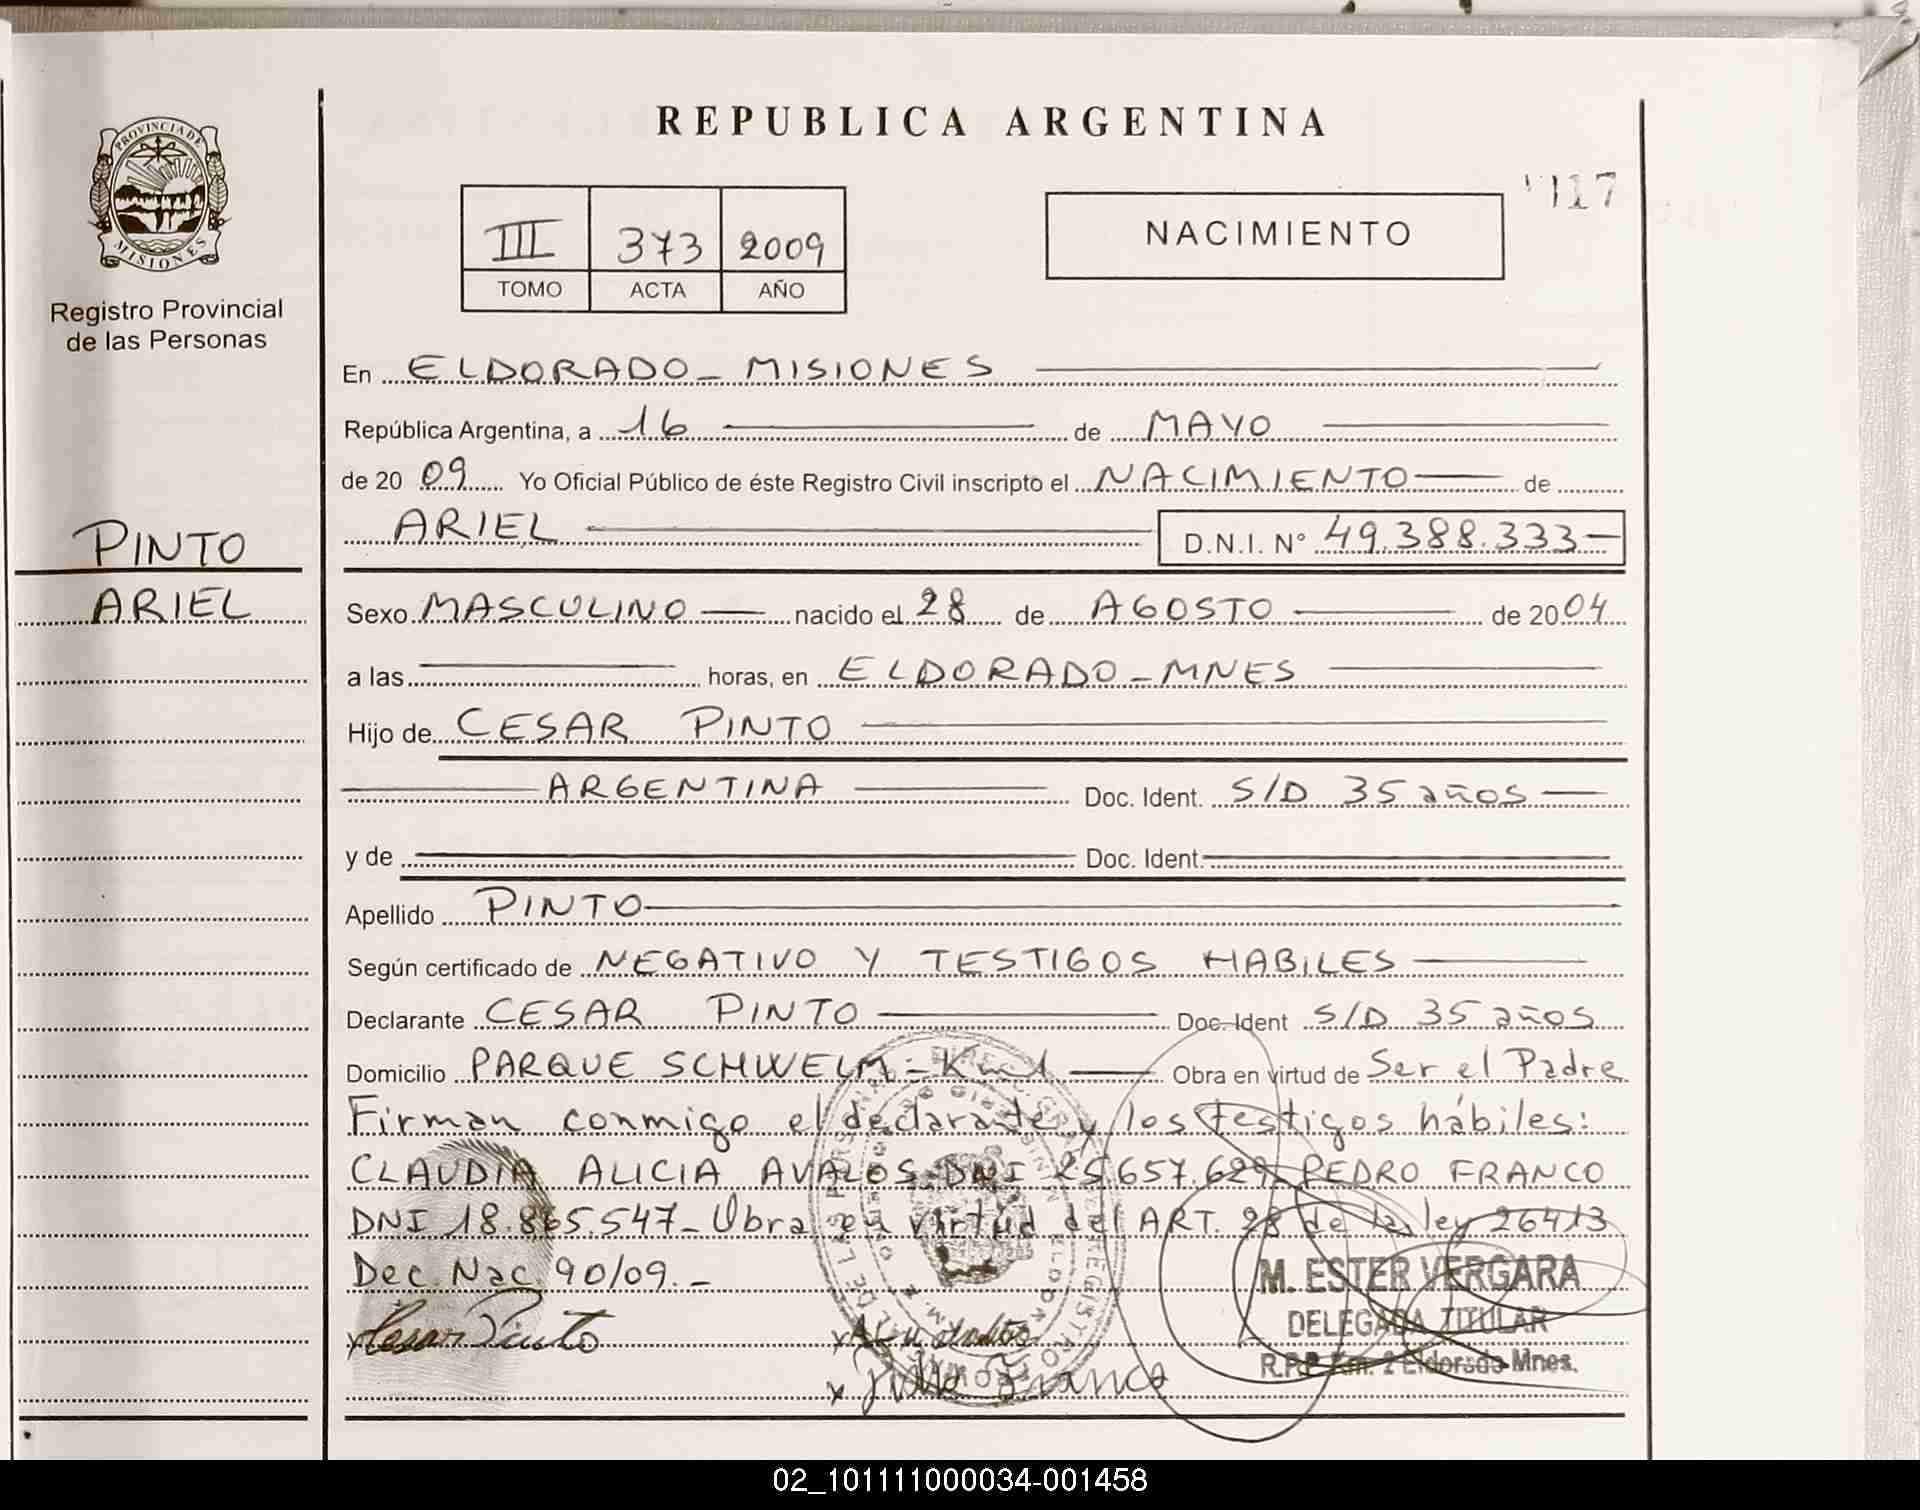 REPUBLICA ARGENTINA
PROVINCIA DE
MISIONES
Registro Provincial
de las Personas
III 373 2009
TOMO ACTA AÑO
NACIMIENTO
117
En ELDORADO - MISIONES
República Argentina, a 16 de MAYO
de 20 09 Yo Oficial Público de éste Registro Civil inscripto el NACIMIENTO de
ARIEL D.N.I. N° 49.388.333
PINTO
ARIEL
Sexo MASCULINO nacido el 28 de AGOSTO de 2004
a las horas, en ELDORADO - MNES
Hijo de CESAR PINTO
ARGENTINA Doc. Ident. S/D 35 años
y de Doc. Ident.
Apellido PINTO
Según certificado de NEGATIVO Y TESTIGOS HABILES
Declarante CESAR PINTO Doc. Ident S/D 35 años
Domicilio PARQUE SCHWELM - Km 1 Obra en virtud de Ser el Padre
Firman conmigo el declarante y los testigos hábiles:
CLAUDIA ALICIA AVALOS DNI 25.657.629 PEDRO FRANCO
DNI 18.865.547 - Obra en virtud del ART. 28 de la ley 26413
Dec. Nac. 90/09. -
M. ESTER VERGARA
DELEGADA TITULAR
R.P.P Km. 2 Eldorado Mnes.
x Cesar Pinto
x Franco
02_101111000034-001458